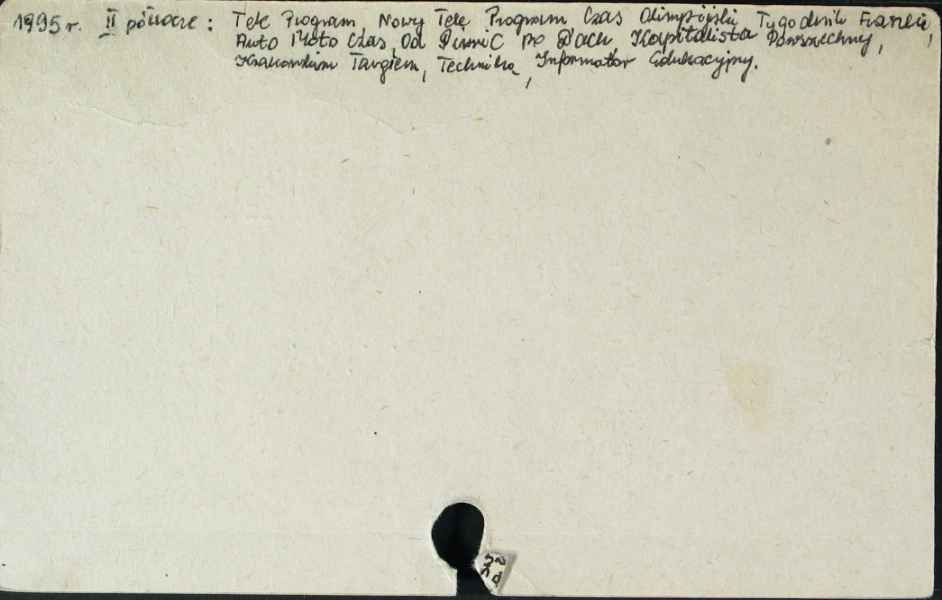 1995 r. II półrocze: Tele Program, Nowy Tele Program Czas Olimpijski, Tygodnik Frankfu,
Auto Moto Czas, Od Piwnic Po Dach, Kapitalista Powszechny,
Krakowskim Targiem, Technika, Informator Edukacyjny.